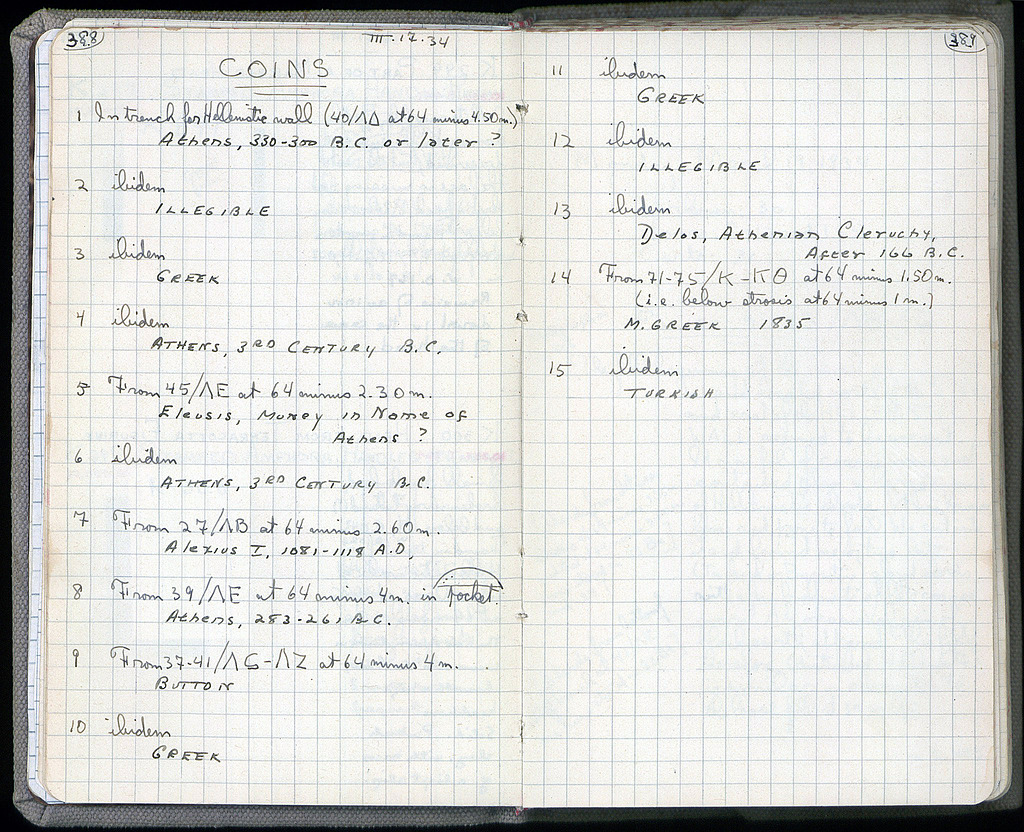 388
III.17.34
COINS
1 In trench for Hellenistic wall (40/ΛΔ at 64 minus 4.50m.)
Athens, 330-300 B.C. or later ?
2 ibidem
ILLEGIBLE
3 ibidem
GREEK
4 ibidem
ATHENS, 3RD CENTURY B.C.
5 From 45/ΛE at 64 minus 2.30m.
Eleusis, Money in Name of
Athens ?
6 ibidem
ATHENS, 3RD CENTURY B.C.
7 From 27/ΛB at 64 minus 2.60m.
Alexius I, 1081-1118 A.D.
8 From 39/ΛE at 64 minus 4m. in pocket.
Athens, 283-261 B.C.
9 From 37-41/ΛϚ-ΛZ at 64 minus 4m.
BUTTON
10 ibidem
GREEK
389
11 ibidem
GREEK
12 ibidem
ILLEGIBLE
13 ibidem
Delos, Athenian Cleruchy,
After 166 B.C.
14 From 71-75/K-KΘ at 64 minus 1.50m.
(i.e. below strosis at 64 minus 1m.)
M. GREEK 1835
15 ibidem
TURKISH